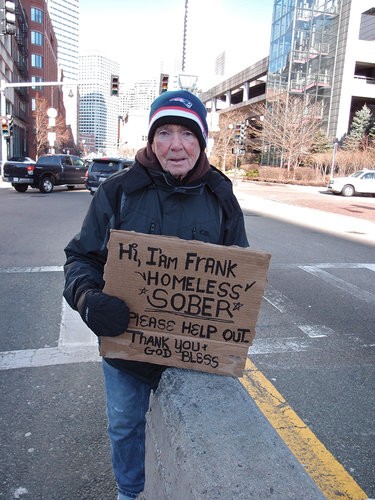 Hi, I am FRANK
"HOMELESS"
*SOBER*
PLEASE HELP OUT
THANK YOU +
GOD BLESS